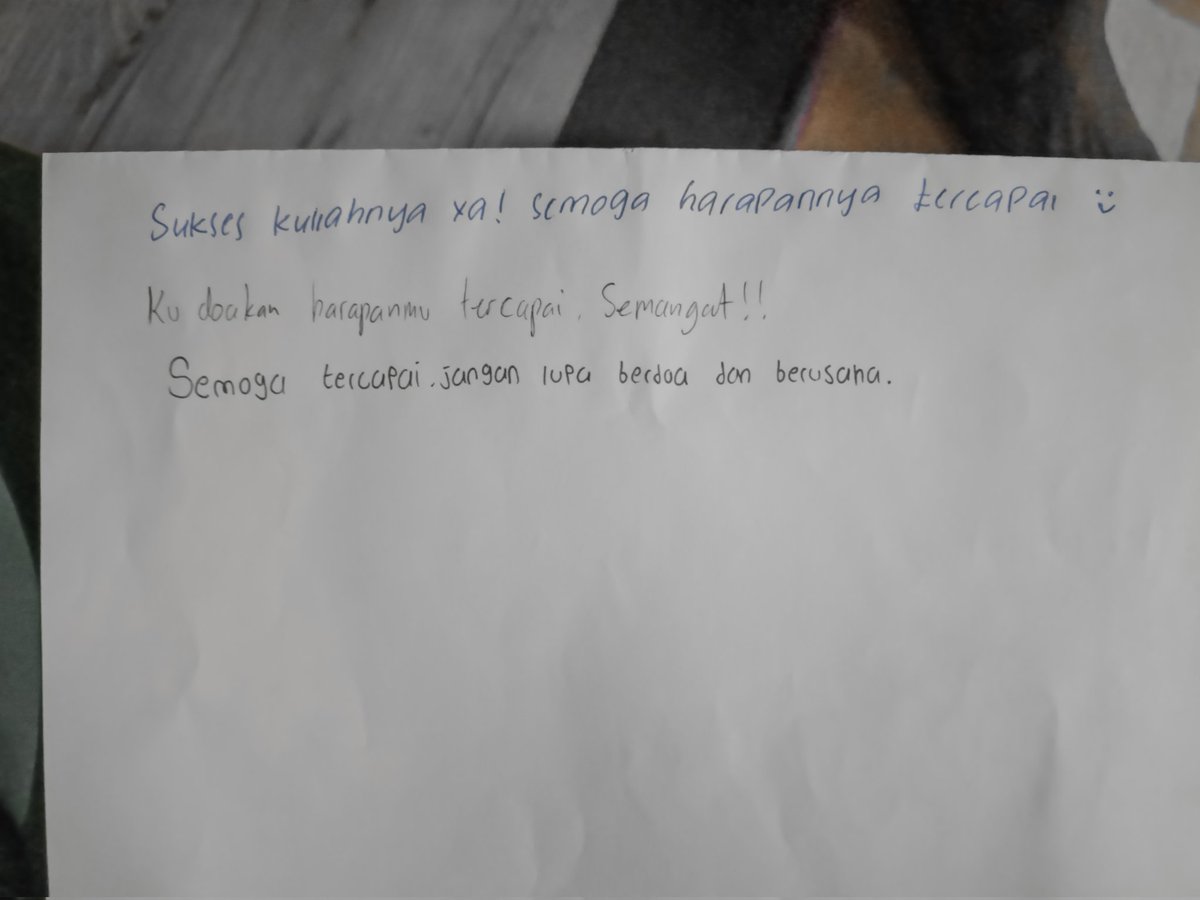 Sukses kuliahnya xa! semoga harapannya tercapai :)
Ku doakan harapanmu tercapai. Semangat!!
Semoga tercapai. jangan lupa berdoa dan berusaha.